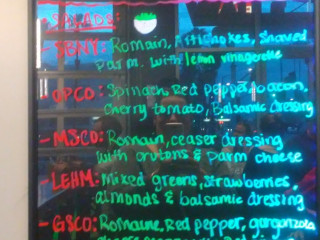 - SALADS:
- SBNY: Romain, Artichokes, Shaved
Parm. with lemon vinagerette
- OPCO: Spinach, Red pepper, bacon,
Cherry tomato, Balsamic dressing
- MSCO: Romain, ceaser dressing
with crutons & parm cheese
LEHM: mixed greens, strawberries,
almonds & balsamic dressing
- GSCO: Romaine, Red pepper, gorgonzola